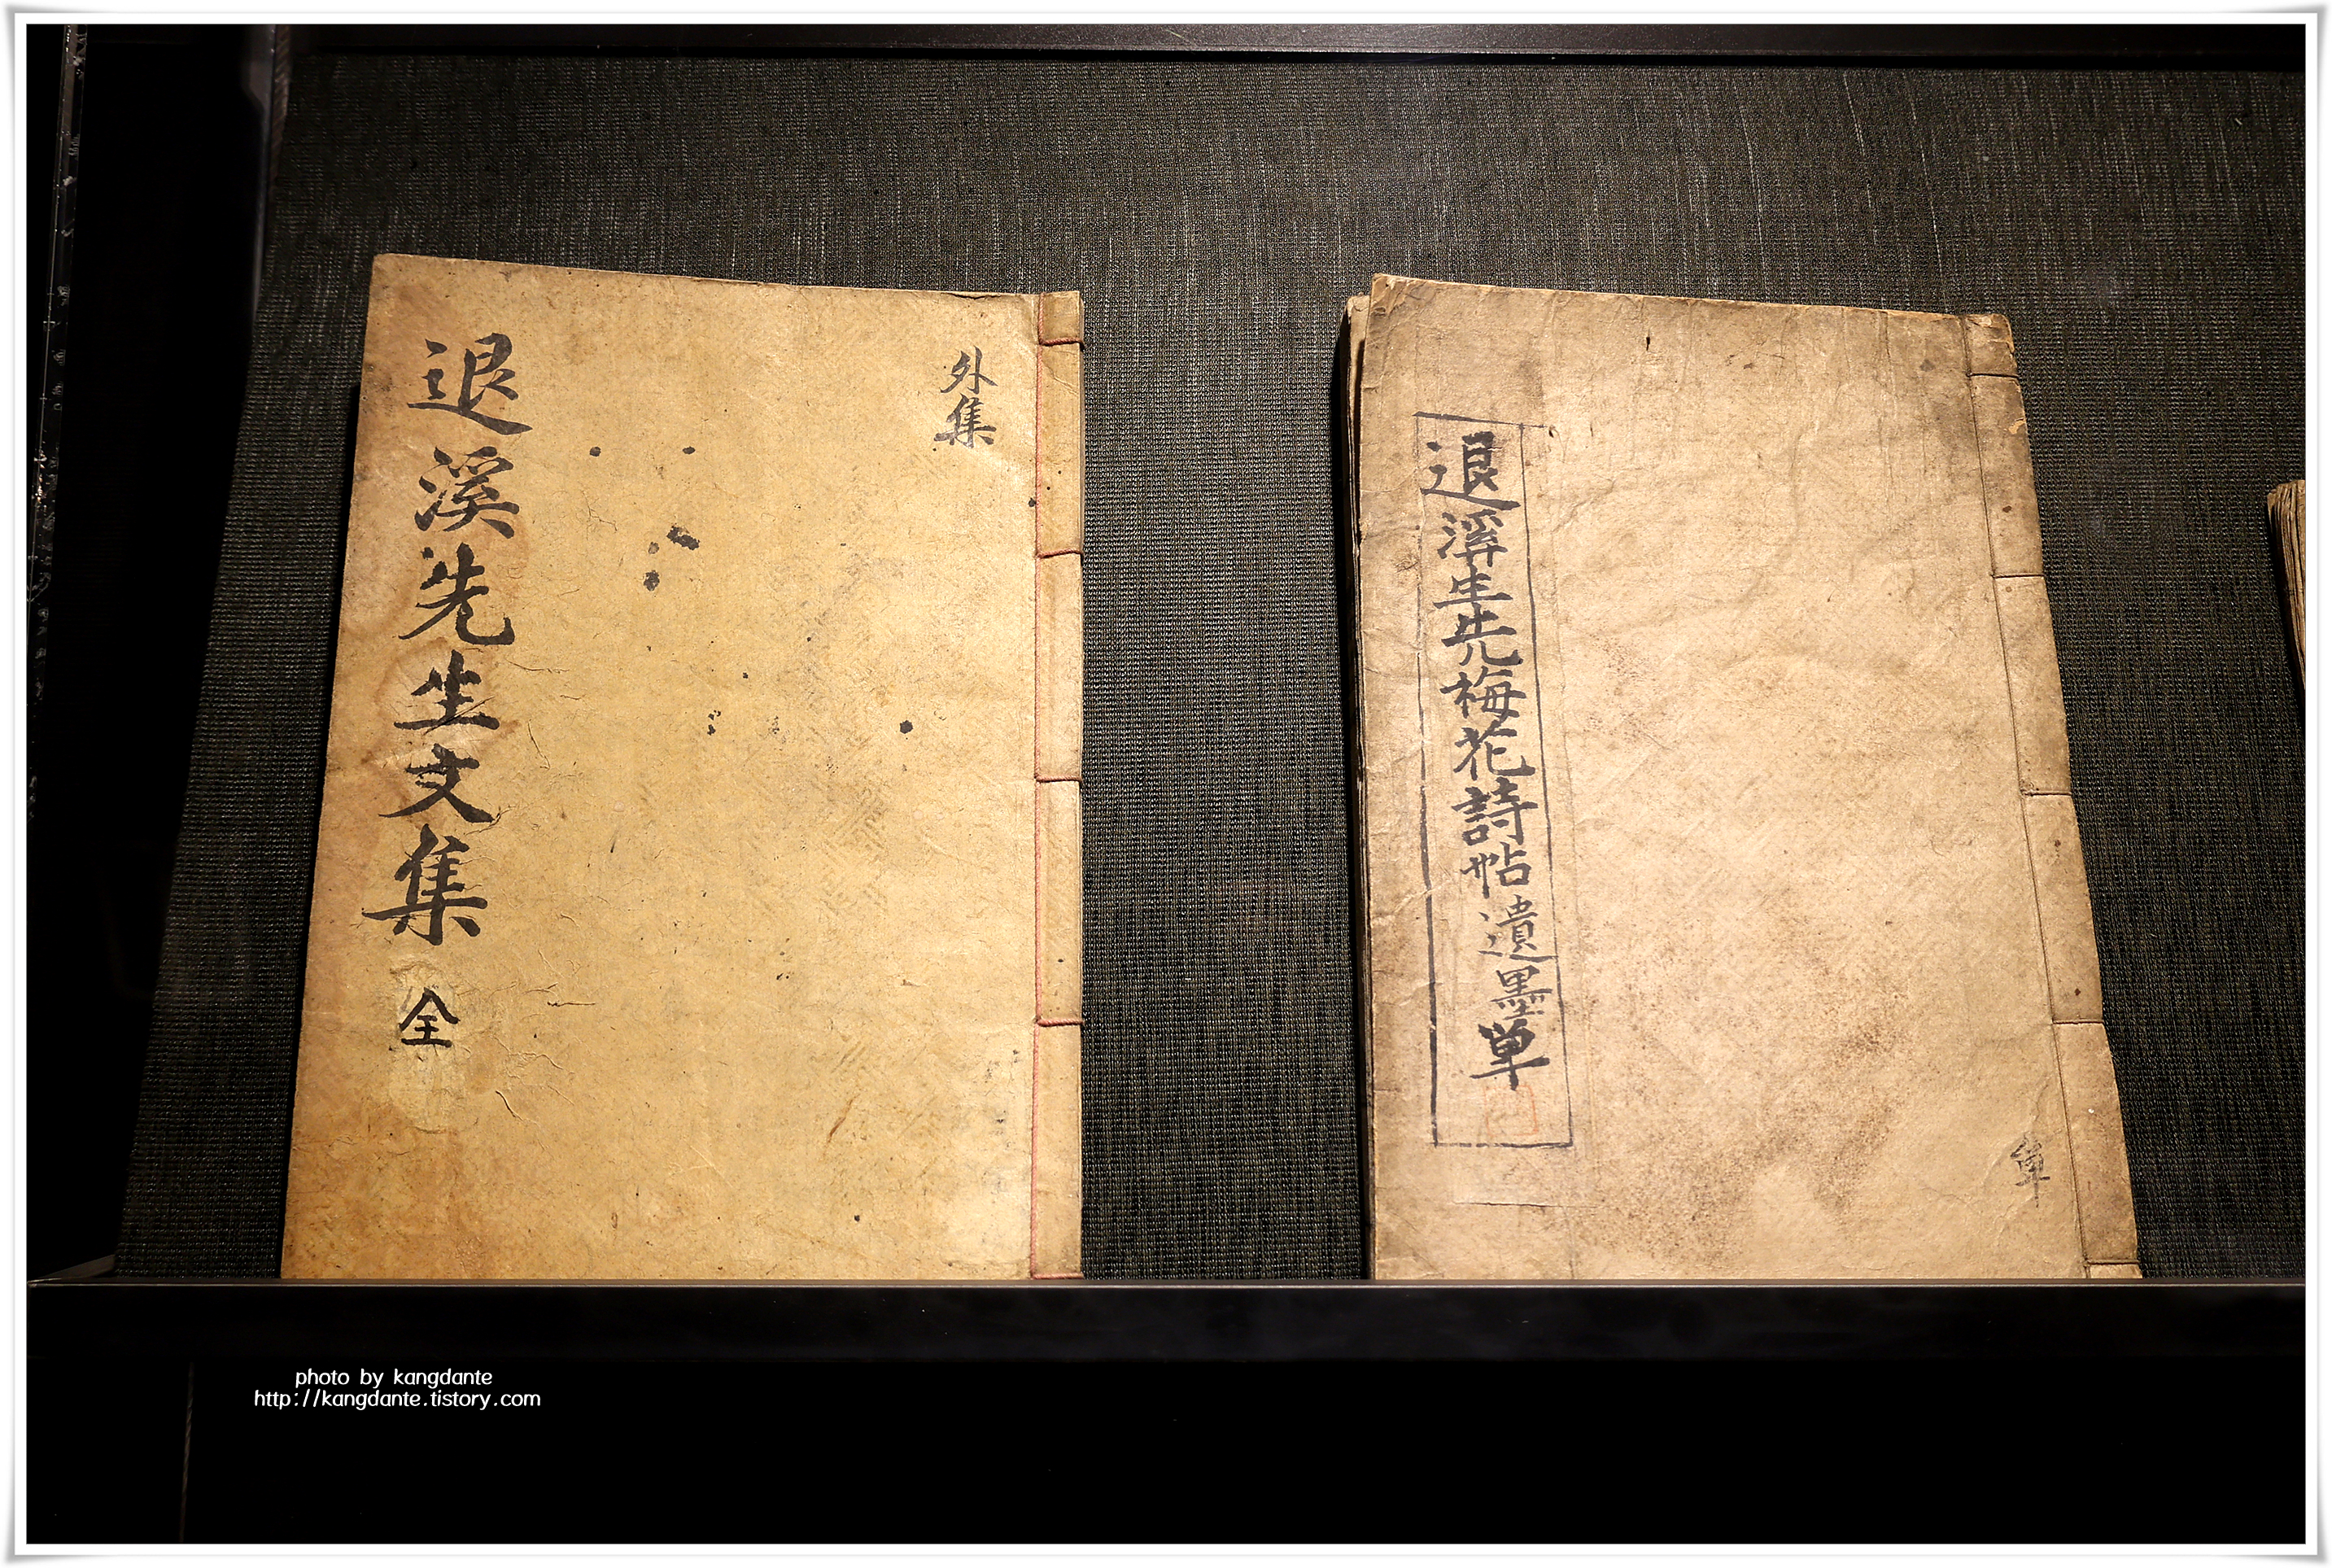 退溪先生文集 全
外集
退溪生先梅花詩帖遺墨單
單
photo by kangdante
http://kangdante.tistory.com